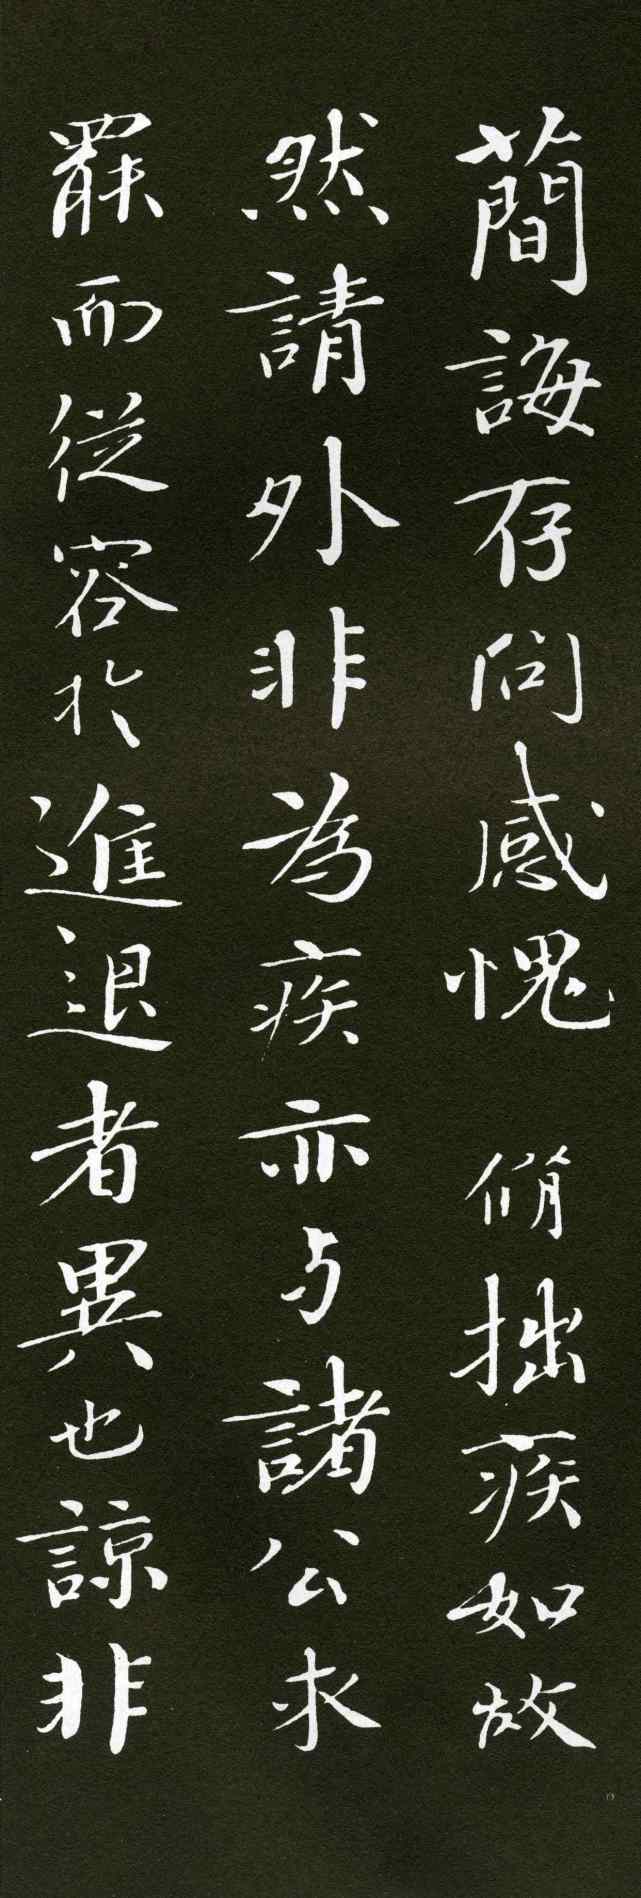 蕳誨存問感愧　脩拙疾如故
然請外非為疾亦与諸公求
罷而従容於進退者異也諒非